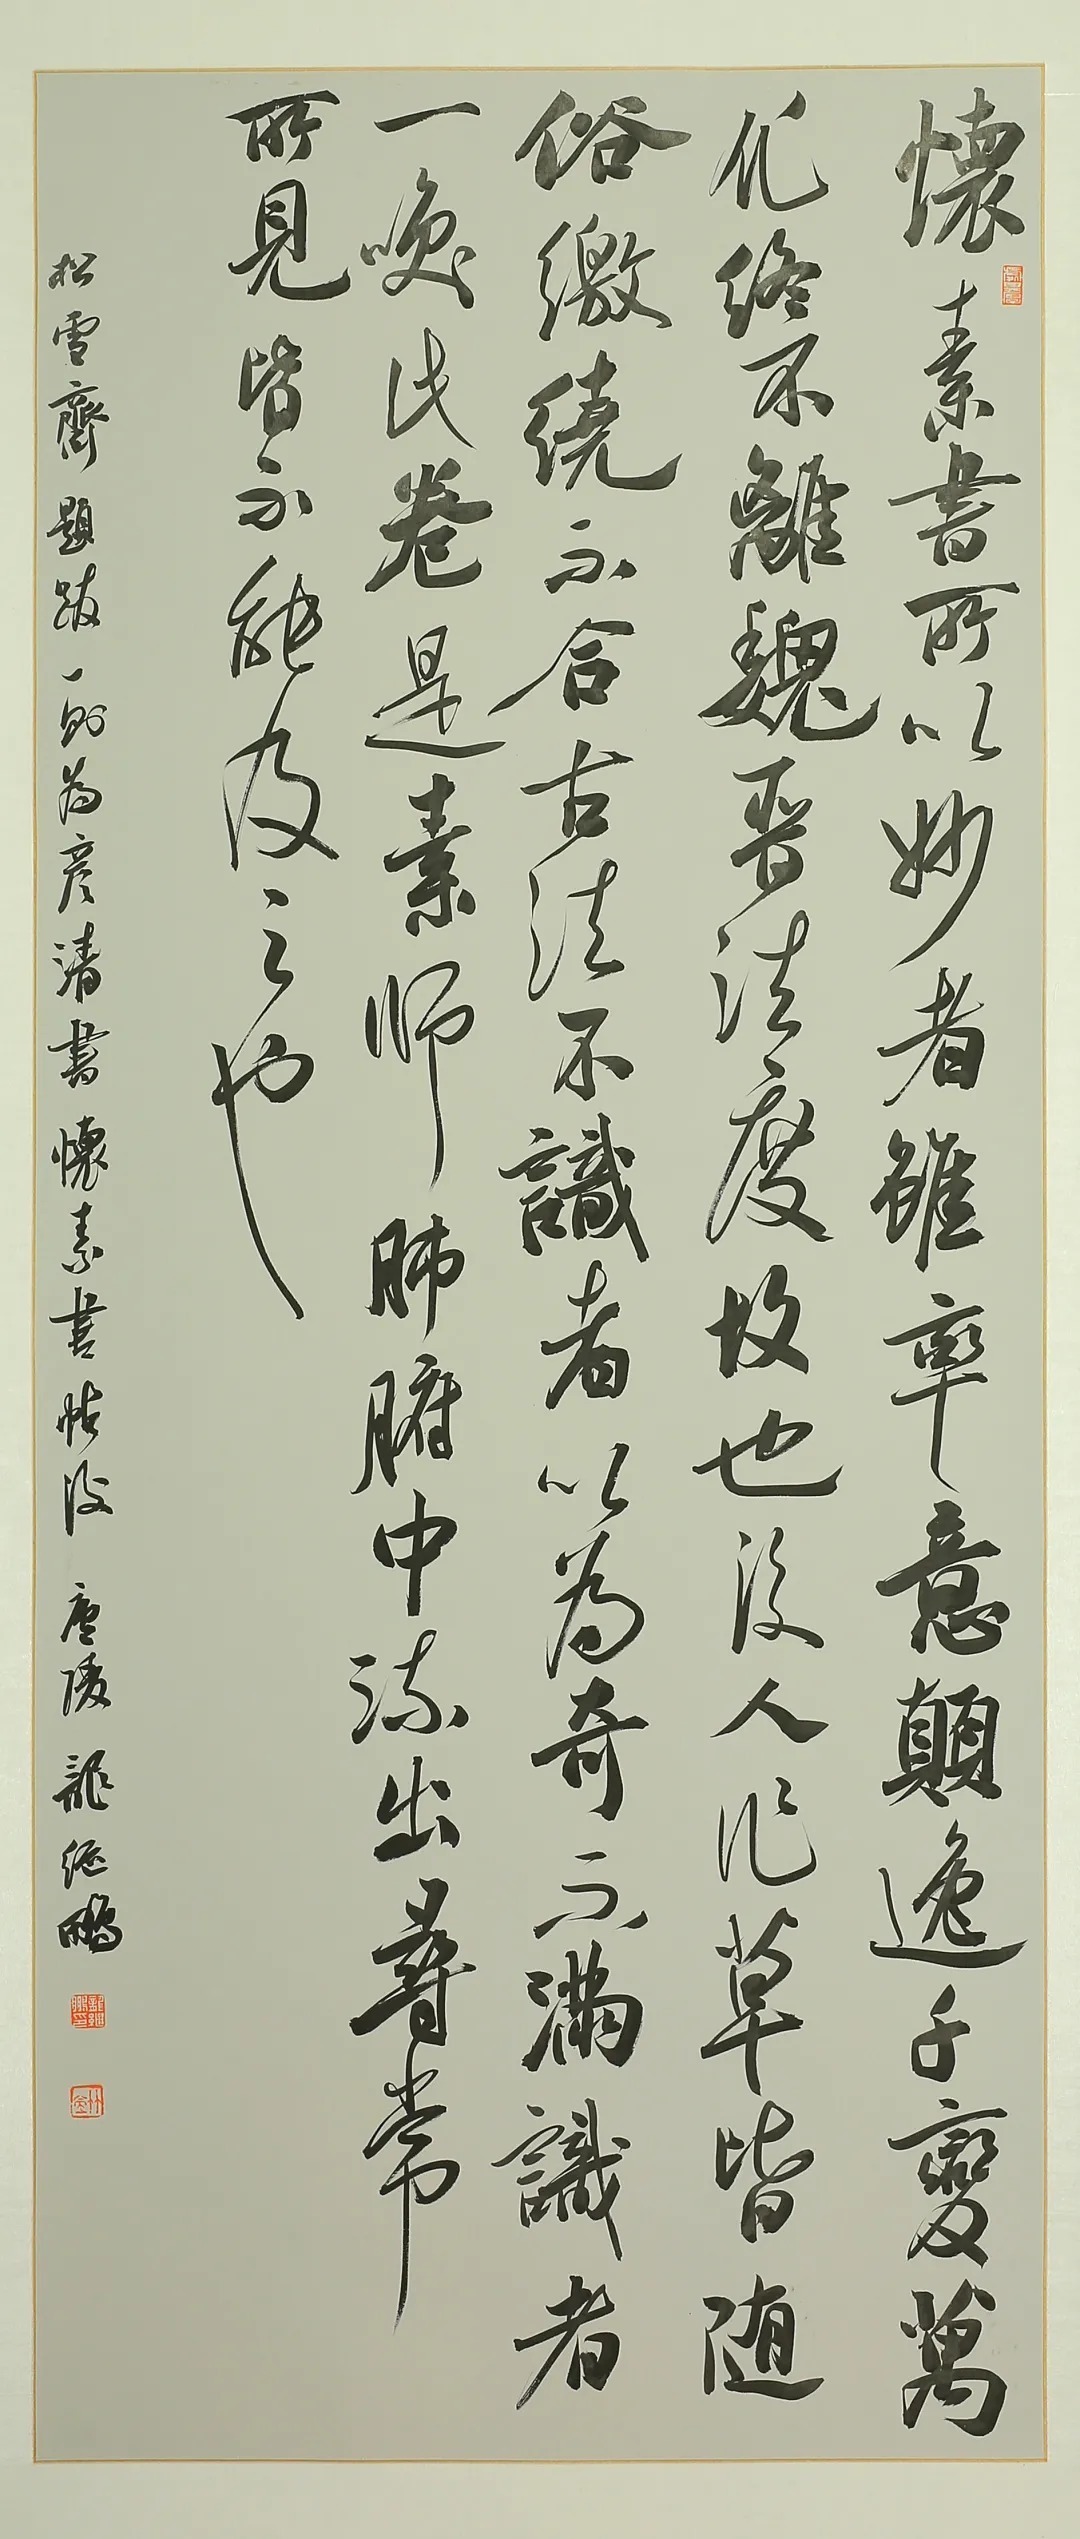 懷素書所以妙者雖率意顛逸千變萬
化終不離魏晉法度故也後人作草皆随
俗繳繞不合古法不識者以為奇不滿識者
一喚此卷是素師肺腑中流出尋常
所見皆不能及之也
松雪齋題跋一則為彦清書懷素書帖後 廬陵龍继鵬